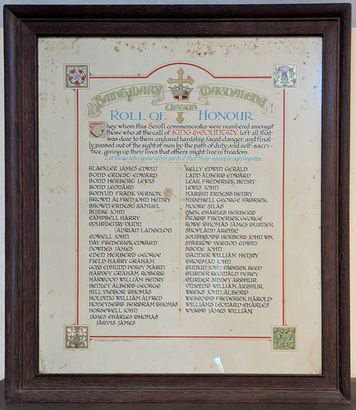 SAINT MARY MAGDALENE
ROLL OF HONOUR
They whom this Scroll commemorates were numbered amongst
those who at the call of KING & COUNTRY left all that
was dear to them, endured hardship, faced danger, and final-
ly passed out of the sight of men by the path of duty and self-sacri-
fice, giving up their lives that others might live in freedom.
Let those who come after see to it that their names be not forgotten.
BLACKLER JAMES EDWIN
BOND ERNEST EDWARD
BOND HERBERT LEWIS
BOND LEONARD
FRANK VERNON
BROWN ALFRED JOHN HENRY
BROWN ERNEST SAMUEL
BURKE JOHN
CAMPBELL HARRY
COURTENAY DUNN
(ADRIAN LADBELOE)
COWELL JOHN
DAY FREDERICK EDWARD
DOWNES JAMES
EDEN HERBERT GEORGE
FIELD HARRY GRAHAM
GOSS EDMUND PERCY MABIN
HARVEY GRAHAM ROBERT
HARWOOD WILLIAM HENRY
HENLEY ALBERT GEORGE
HILL VICTOR THOMAS
HOLDING WILLIAM ALFRED
HONEYSETT BERTRAM THOMAS
HORSEWELL JOHN
JAMES CHARLES THOMAS
JARVIS JAMES
KELLY EDWIN GERALD
LADD ALBERT EDWARD
LEAR FREDERICK HENRY
LEWIS JOHN
MARTIN ERNEST HENRY
MITCHELL GEORGE PATRICK
MOORE SILAS
CHARLES HERBERT
FREDERICK GEORGE
ROWE THOMAS JAMES
SHOPLAND ARCHIE
HERBERT JOHN WM
SPARROW VERNON EDWIN
STONE JOHN
WILLIAM HENRY
JOHN
JOHN FREDERICK
REGINALD PERCY
SIDNEY ARTHUR
WILLIAM ARTHUR
WEEKS JOHN ALBERT
FREDERICK HAROLD
WILLIAMS LEONARD CHARLES
WYATT JAMES WILLIAM